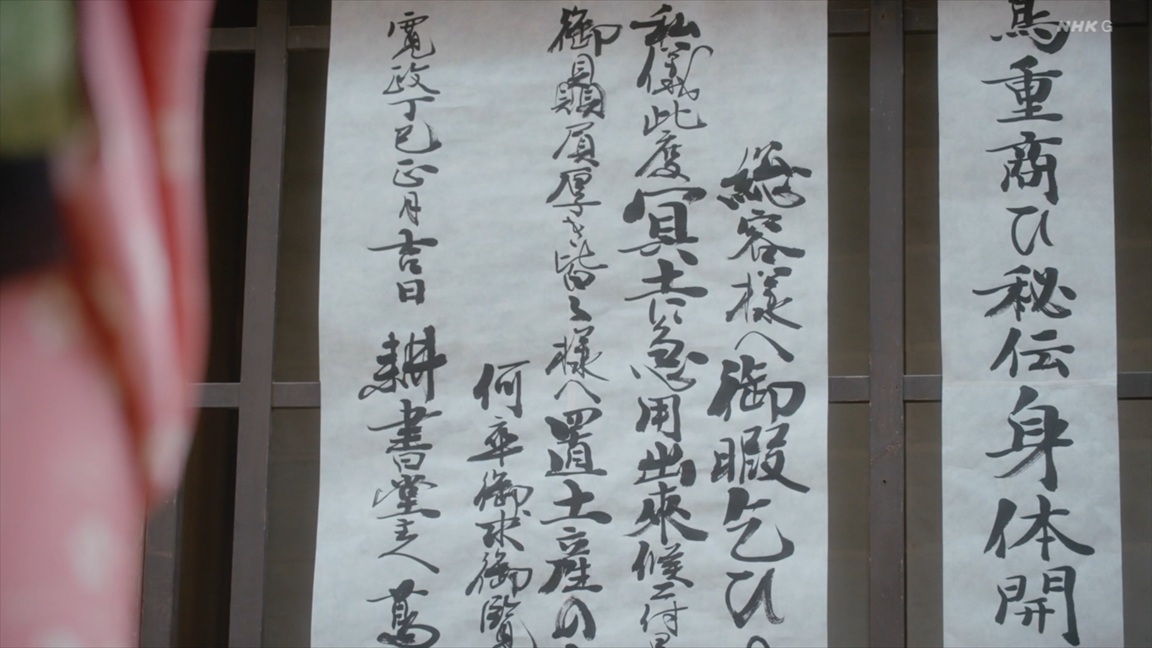 蔦重商ひ秘伝身体開
総容様へ御暇乞ひの
私儀此度冥土に急用出來候に付
御贔屓厚き皆々様へ置土産の
何卒御求御覧
寛政丁巳正月吉日 耕書堂主人 蔦
NHK G